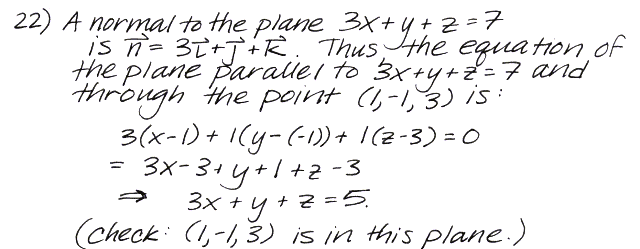 22) A normal to the plane 3x+y+z=7
is n⃗ = 3i⃗+j⃗+k⃗. Thus, the equation of
the plane parallel to 3x+y+z=7 and
through the point (1,-1,3) is:
3(x-1)+1(y-(-1))+1(z-3)=0
= 3x-3+y+1+z-3
⇒ 3x+y+z=5.
(check: (1,-1,3) is in this plane.)